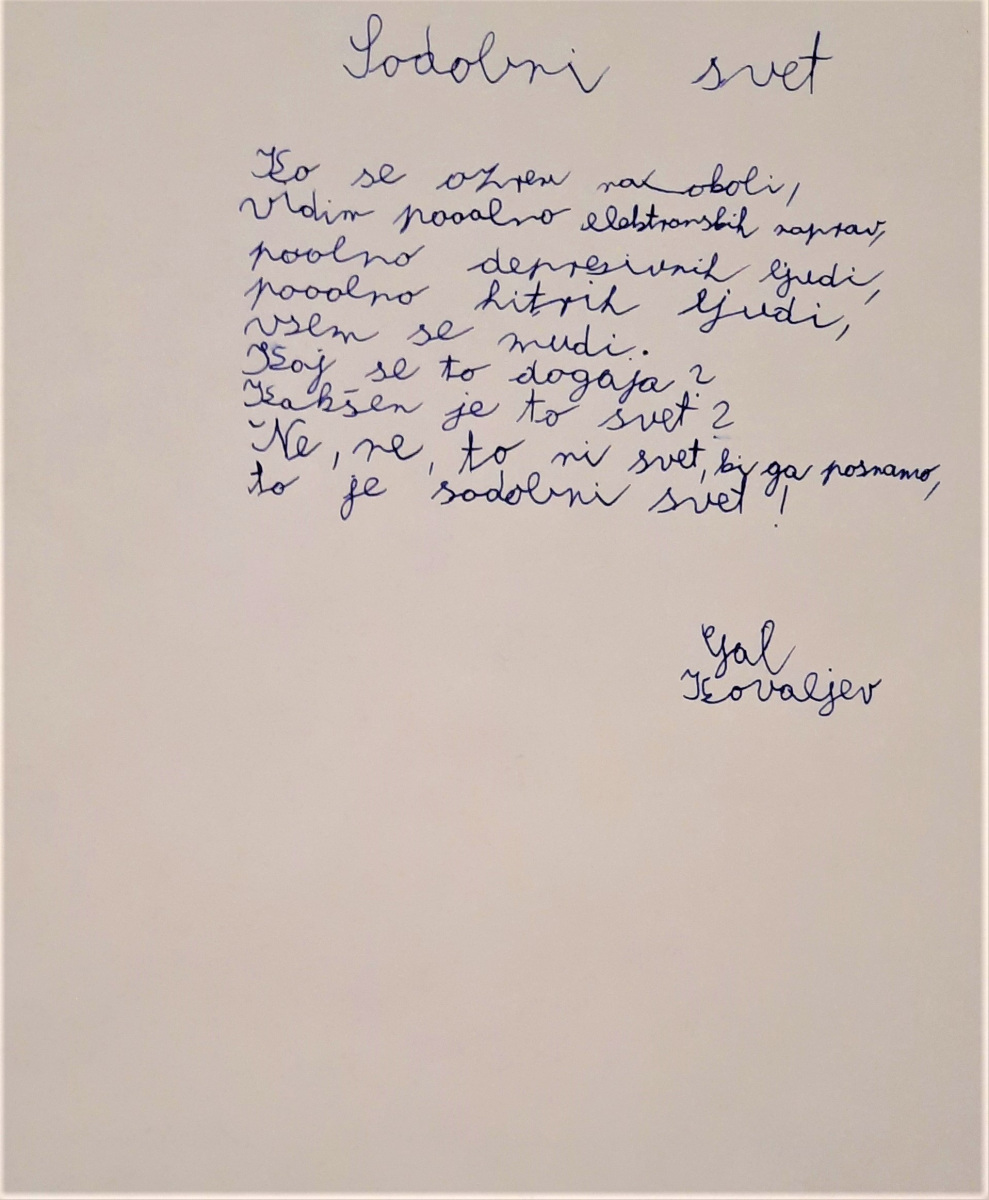 Sodobni svet
Ko se ozrem na okoli,
vidim pooolno elektronskih naprav,
poolno depresivnih ljudi,
pooolno hitrih ljudi,
vsem se mudi.
Kaj se to dogaja?
Kakšen je to svet?
Ne, ne, to ni svet, ki ga posnamo,
to je sodobni svet!
Gal
Kovaljev